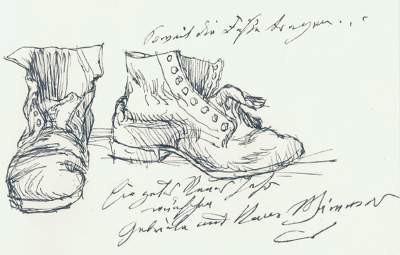 Soweit die Füße tragen...
Ein gutes Neues Jahr
wünschen
Gabriele und